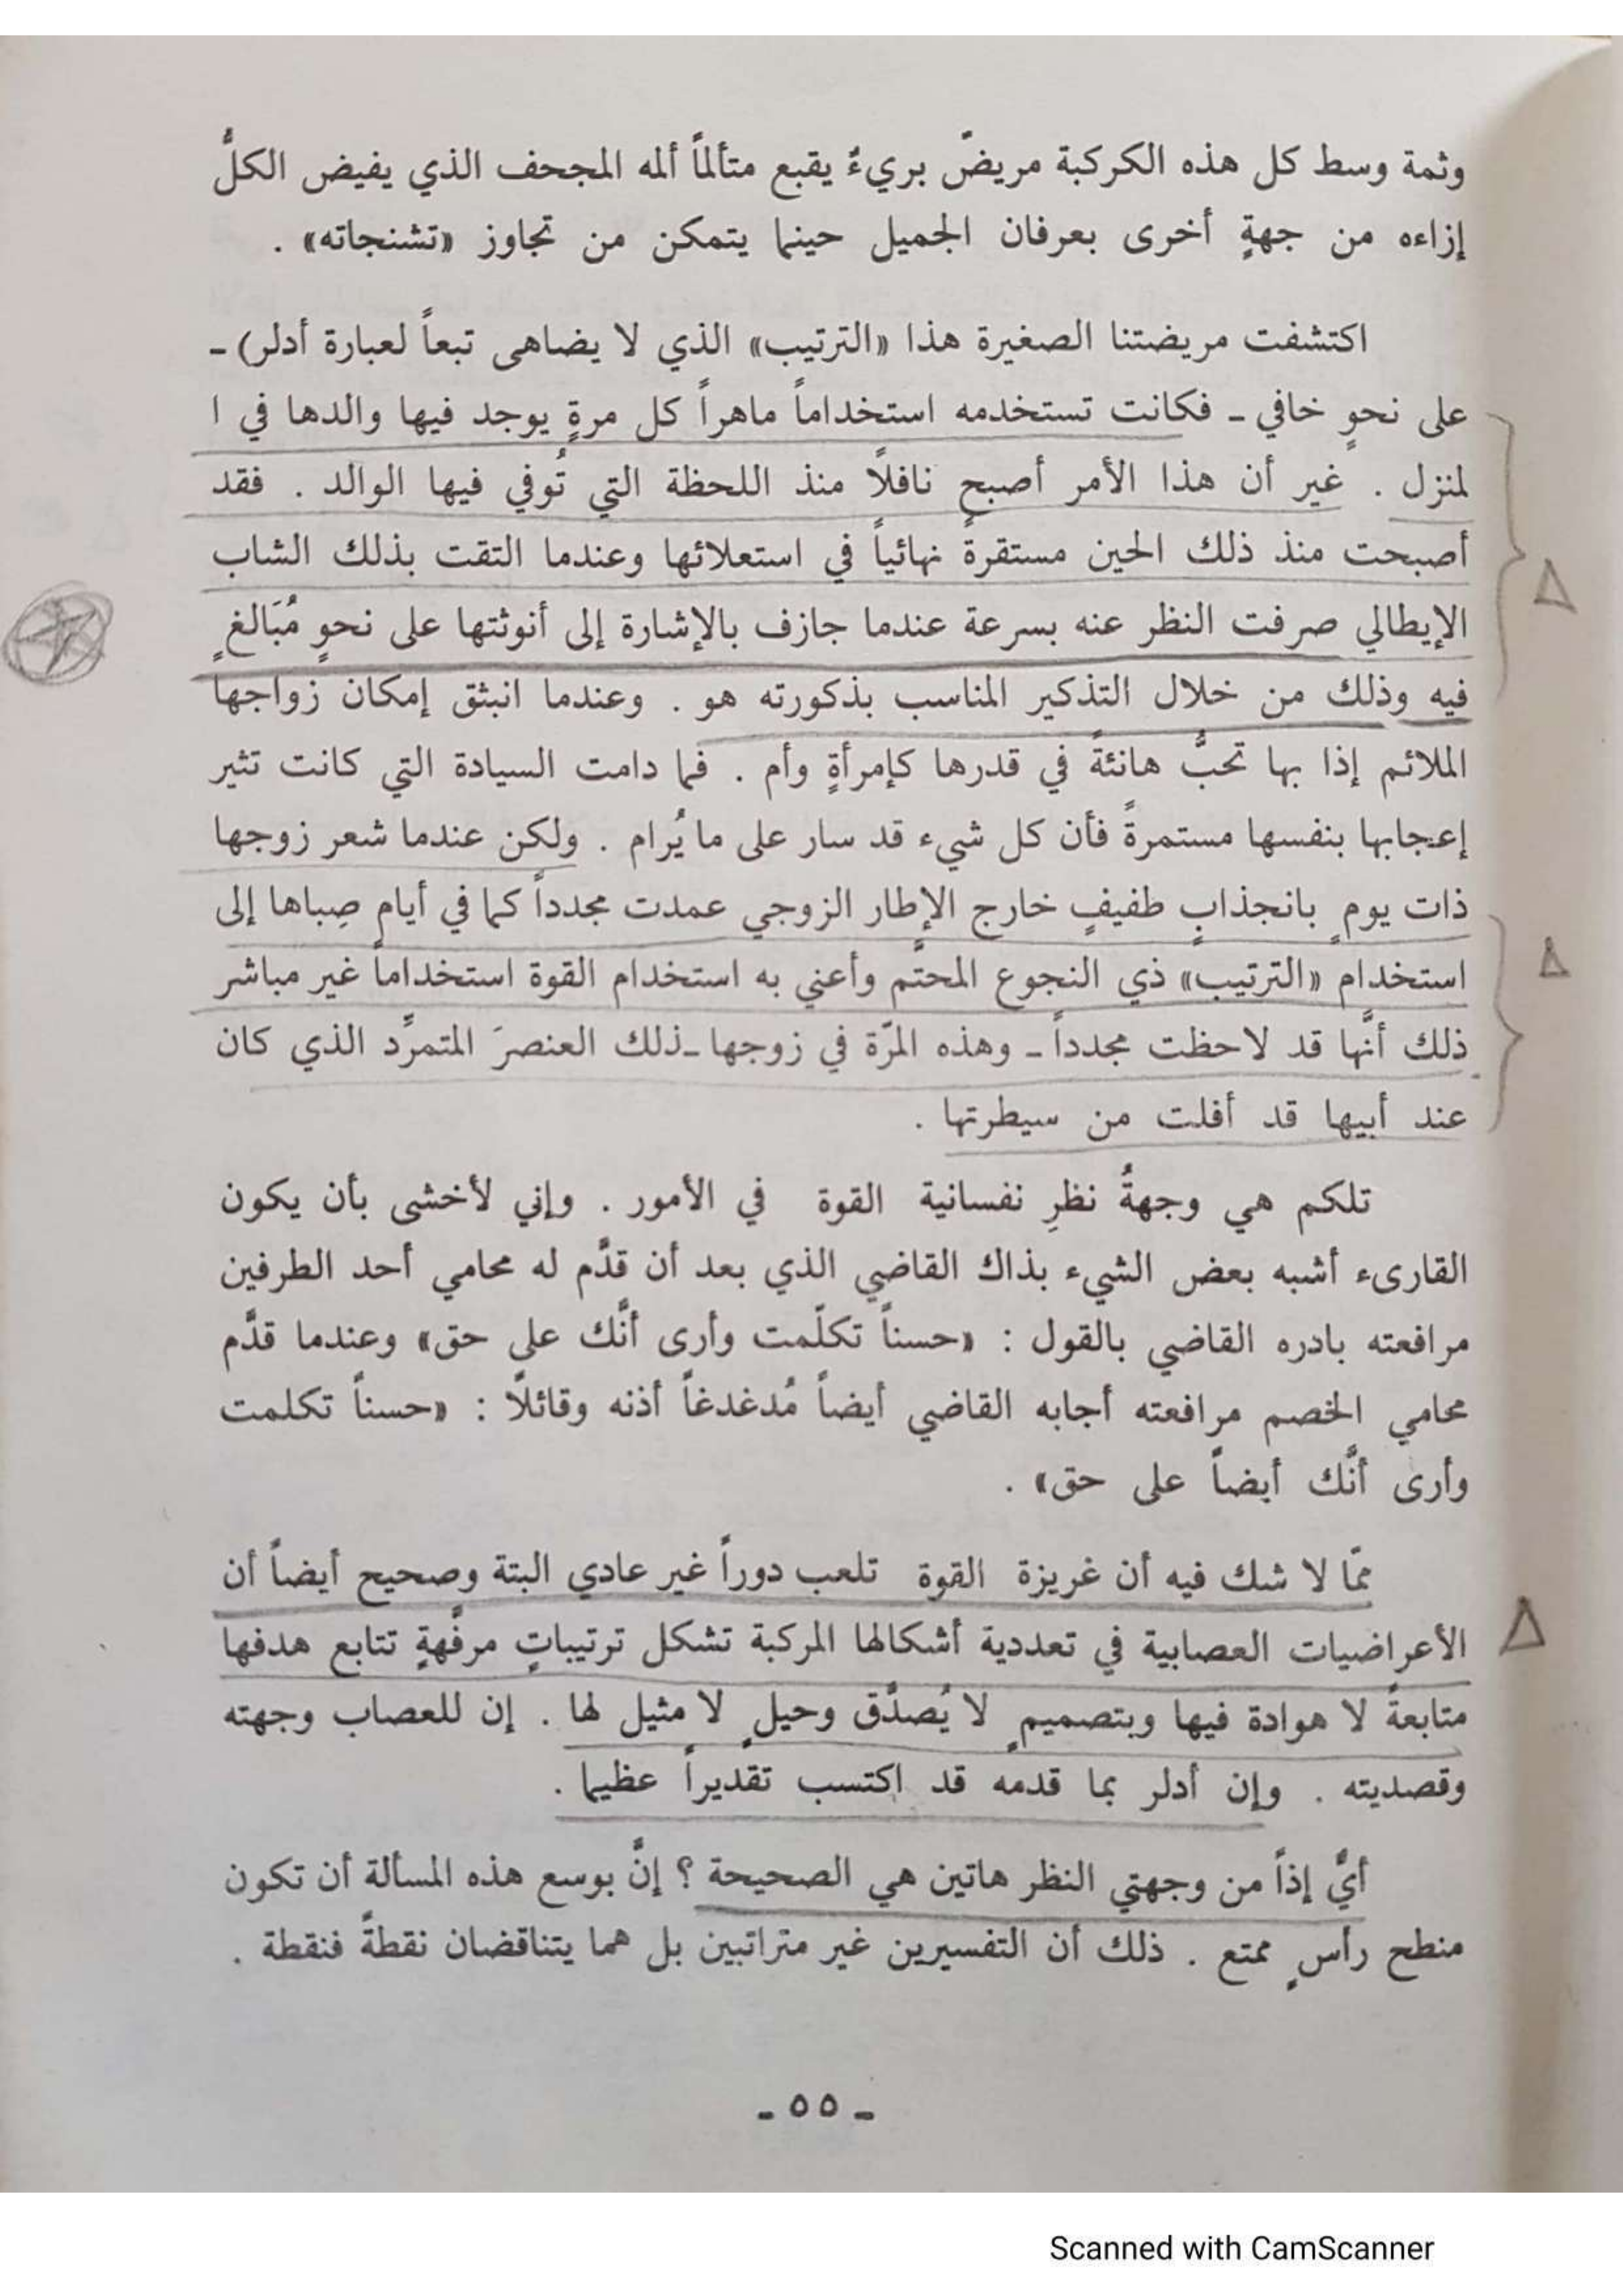 وثمة وسط كل هذه الكركبة مريضٌ بريءٌ يقبع متألماً ألمه المجحف الذي يفيض الكلُّ
إزاءه من جهةٍ أخرى بعرفان الجميل حينما يتمكن من تجاوز «تشنجاته» .
اكتشفت مريضتنا الصغيرة هذا «الترتيب» الذي لا يضاهى تبعاً لعبارة أدلر) -
على نحوٍ خافي - فكانت تستخدمه استخداماً ماهراً كل مرةٍ يوجد فيها والدها في ا
لمنزل . غير أن هذا الأمر أصبح نافلًا منذ اللحظة التي تُوفي فيها الوالد . فقد
أصبحت منذ ذلك الحين مستقرةً نهائياً في استعلائها وعندما التقت بذلك الشاب
الإيطالي صرفت النظر عنه بسرعة عندما جازف بالإشارة إلى أنوثتها على نحوٍ مُبَالغٍ
فيه وذلك من خلال التذكير المناسب بذكورته هو . وعندما انبثق إمكان زواجها
الملائم إذا بها تحبُّ هانئةً في قدرها كإمرأةٍ وأم . فما دامت السيادة التي كانت تثير
إعجابها بنفسها مستمرةً فأن كل شيء قد سار على ما يُرام . ولكن عندما شعر زوجها
ذات يومٍ بانجذابٍ طفيفٍ خارج الإطار الزوجي عمدت مجدداً كما في أيام صِباها إلى
استخدام «الترتيب» ذي النجوع المحتَّم وأعني به استخدام القوة استخداماً غير مباشر
ذلك أنَّها قد لاحظت مجدداً - وهذه المرّة في زوجها - ذلك العنصرَ المتمرِّد الذي كان
عند أبيها قد أفلت من سيطرتها .
تلكم هي وجهةُ نظرِ نفسانية القوة في الأمور . وإني لأخشى بأن يكون
القارىء أشبه بعض الشيء بذاك القاضي الذي بعد أن قدَّم له محامي أحد الطرفين
مرافعته بادره القاضي بالقول : «حسناً تكلّمت وأرى أنَّك على حق» وعندما قدَّم
محامي الخصم مرافعته أجابه القاضي أيضاً مُدغدغاً أذنه وقائلًا : «حسناً تكلمت
وأرى أنَّك أيضاً على حق» .
ممّا لا شك فيه أن غريزة القوة تلعب دوراً غير عادي البتة وصحيح أيضاً أن
الأعراضيات العصابية في تعددية أشكالها المركبة تشكل ترتيباتٍ مرفَّهةٍ تتابع هدفها
متابعةً لا هوادة فيها وبتصميمٍ لا يُصدَّق وحيلٍ لا مثيل لها . إن للعصاب وجهته
وقصديته . وإن أدلر بما قدمه قد اكتسب تقديراً عظيما .
أيٌّ إذاً من وجهتي النظر هاتين هي الصحيحة ؟ إنَّ بوسع هذه المسألة أن تكون
منطح رأسٍ ممتع . ذلك أن التفسيرين غير متراتبين بل هما يتناقضان نقطةً فنقطة .
- ٥٥ -
Scanned with CamScanner